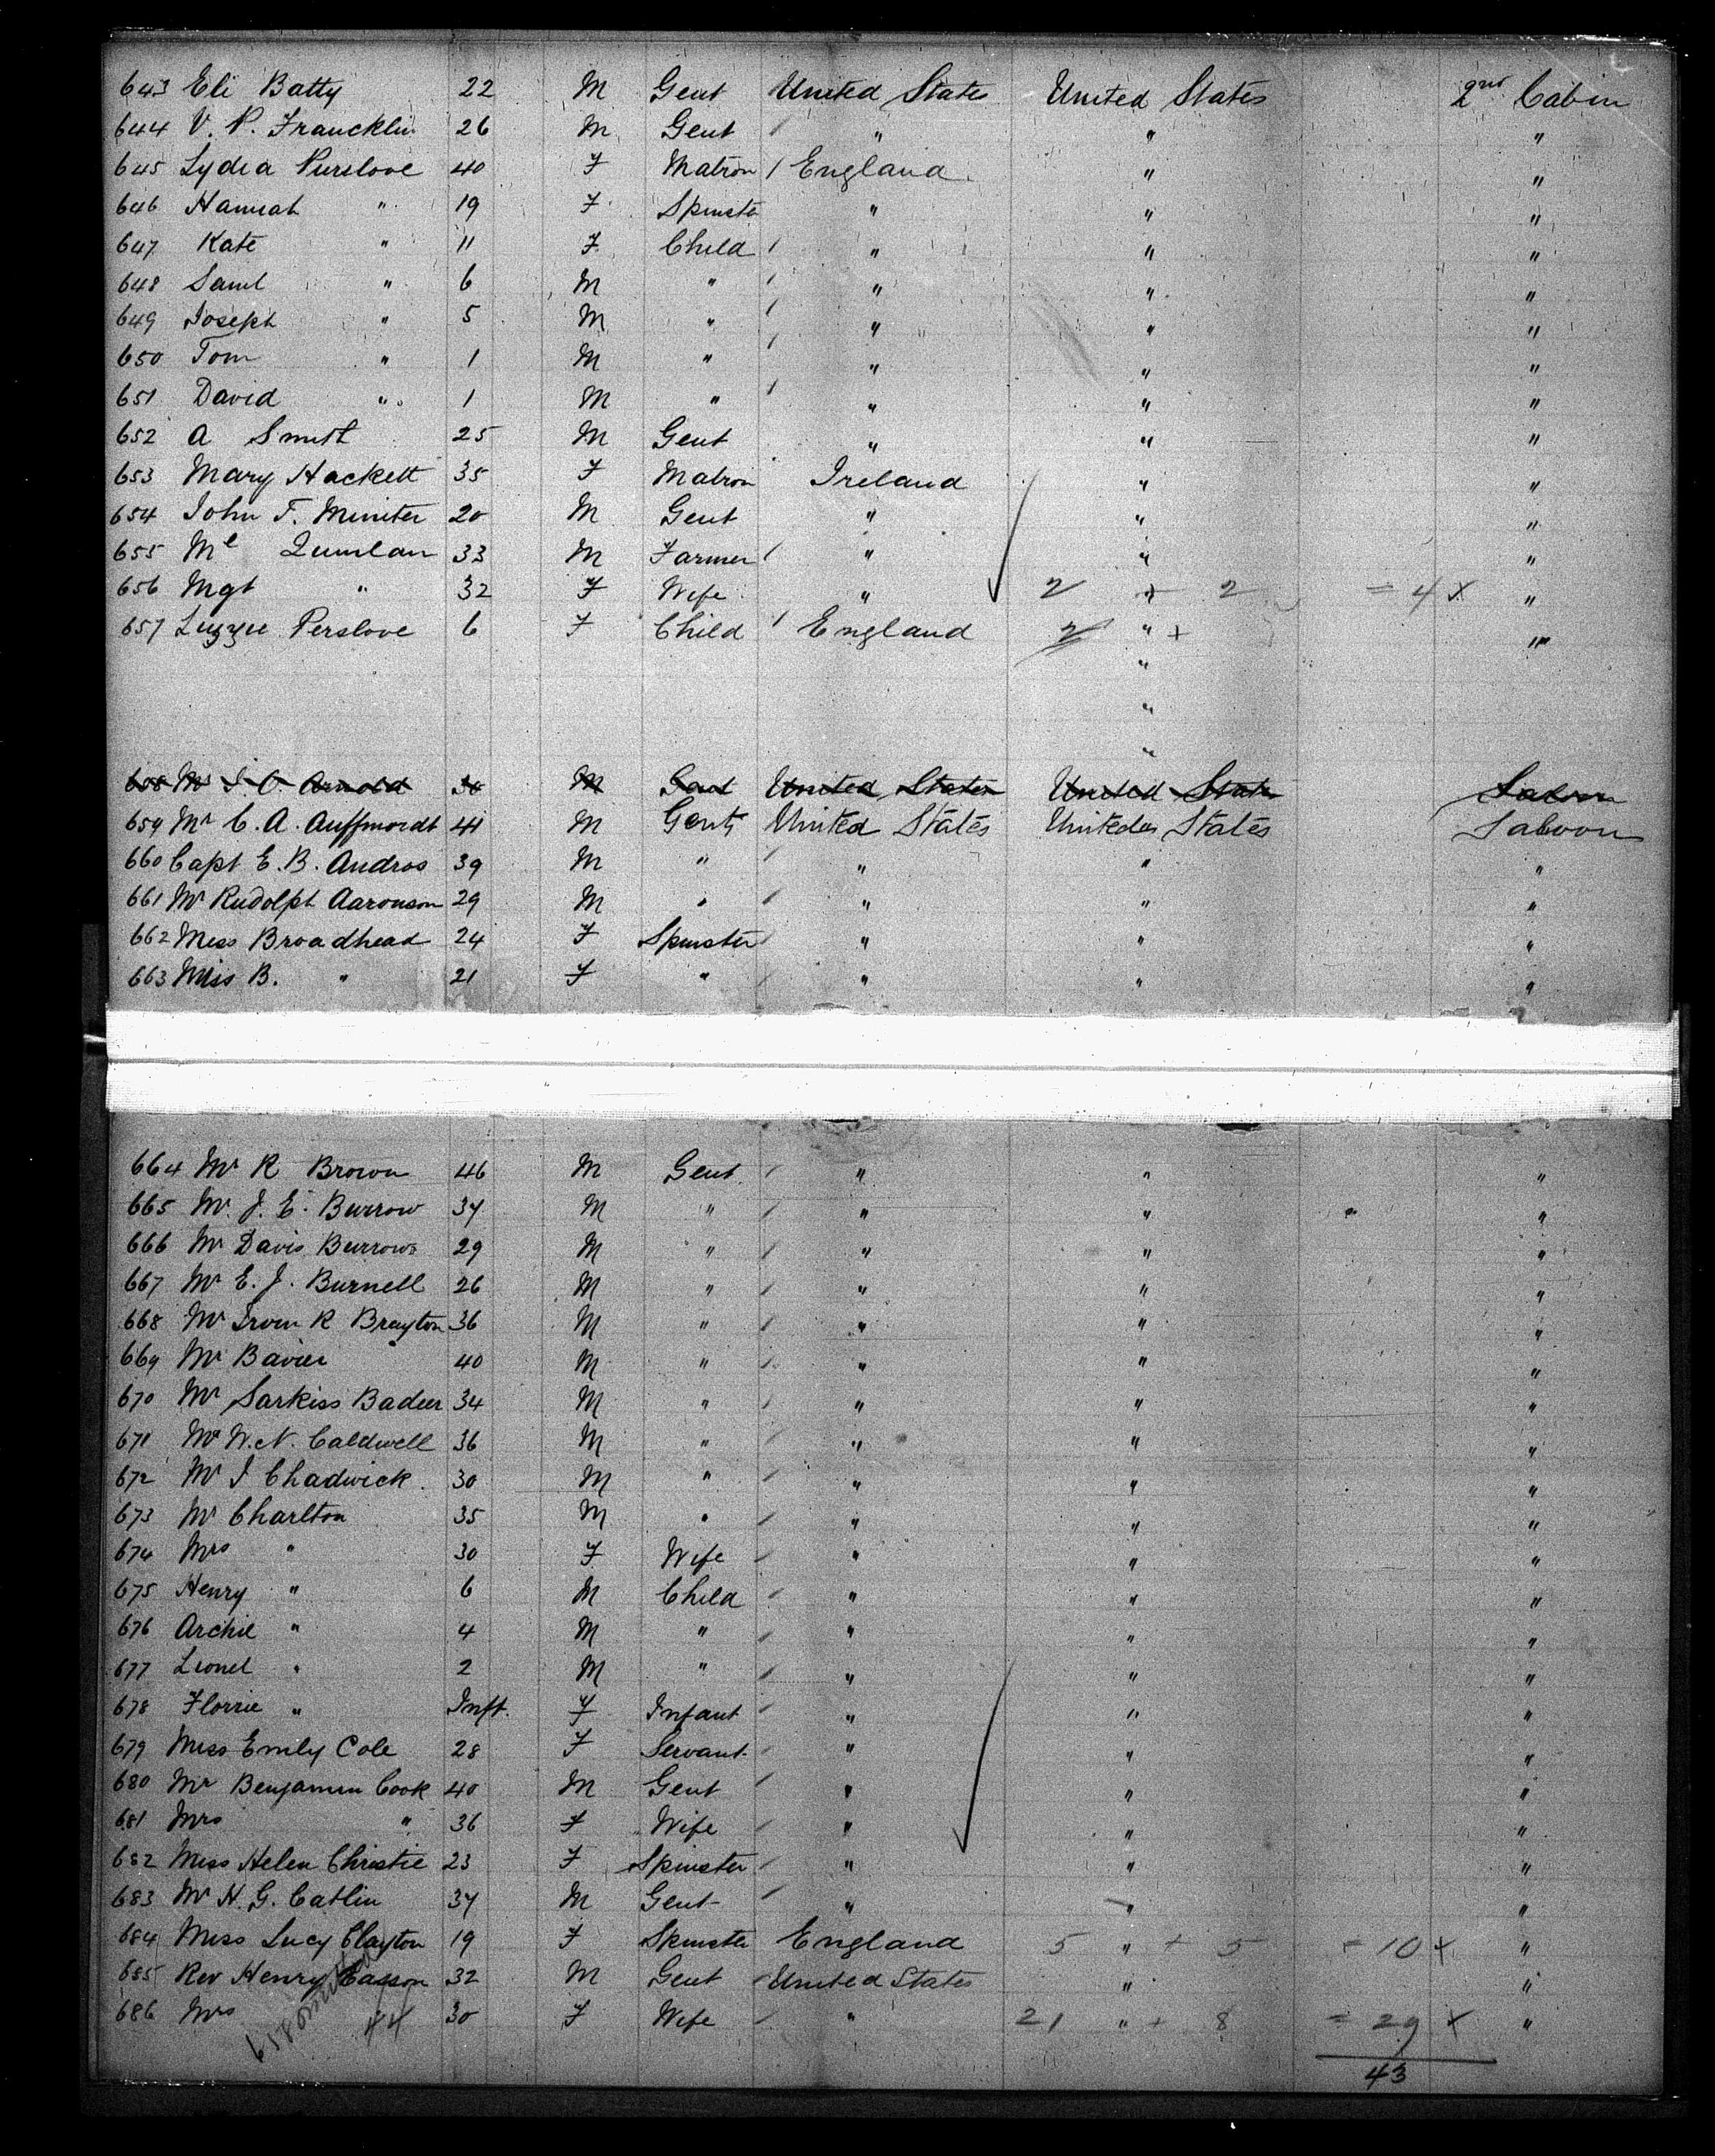 643 Eli Batty 22 M Gent United States United States 2nd Cabin
644 V. P. Francklin 26 M Gent " " "
645 Lydia Purslove 40 F Matron England " "
646 Hannah " 19 F Spinster " " "
647 Kate " 11 F Child " " "
648 Saml " 6 M " " " "
649 Joseph " 5 M " " " "
650 Tom " 1 M " " " "
651 David " 1 M " " " "
652 A Smith 25 M Gent " " "
653 Mary Hackett 35 F Matron Ireland " "
654 John T. Miniter 20 M Gent " " "
655 Ml Quinlan 33 M Farmer " " "
656 Mgt " 32 F Wife " 2 + 2 = 4 x "
657 Lizzie Perslove 6 F Child England 2 " + "
"
"
"
658 Mr J C Arnold 30 M Gent United States United States Saloon
659 Mr C. A. Auffmordt 41 M Gent United States United States Saloon
660 Capt E. B. Andros 39 M " " " "
661 Mr Rudolph Aaronson 29 M " " " "
662 Miss Broadhead 24 F Spinster " " "
663 Miss B. " 21 F " " " "
664 Mr R Brown 46 M Gent " " "
665 Mr. J. E. Burrow 34 M " " " "
666 Mr Davis Burrows 29 M " " " "
667 Mr E. J. Burnell 26 M " " " "
668 Mr Irvin R Brayton 36 M " " " "
669 Mr Bavier 40 M " " " "
670 Mr Sarkiss Badeer 34 M " " " "
671 Mr W. N. Caldwell 36 M " " " "
672 Mr J Chadwick 30 M " " " "
673 Mr Charlton 35 M " " " "
674 Mrs " 30 F Wife " " "
675 Henry " 6 M Child " " "
676 Archie " 4 M " " " "
677 Lionel " 2 M " " " "
678 Florrie " Inft. F Infant " " "
679 Miss Emily Cole 28 F Servant " " "
680 Mr Benjamin Cook 40 M Gent " " "
681 Mrs " 36 F Wife " " "
682 Miss Helen Christie 23 F Spinster " " "
683 Mr H. G. Catlin 34 M Gent " " "
684 Miss Lucy Clayton 19 F Spinster England 5 " + 5 = 10 x "
685 Rev Henry Casson 32 M Gent United States " "
686 Mrs " 30 F Wife " 21 " + 8 = 29 x "
658 omitted 44
43